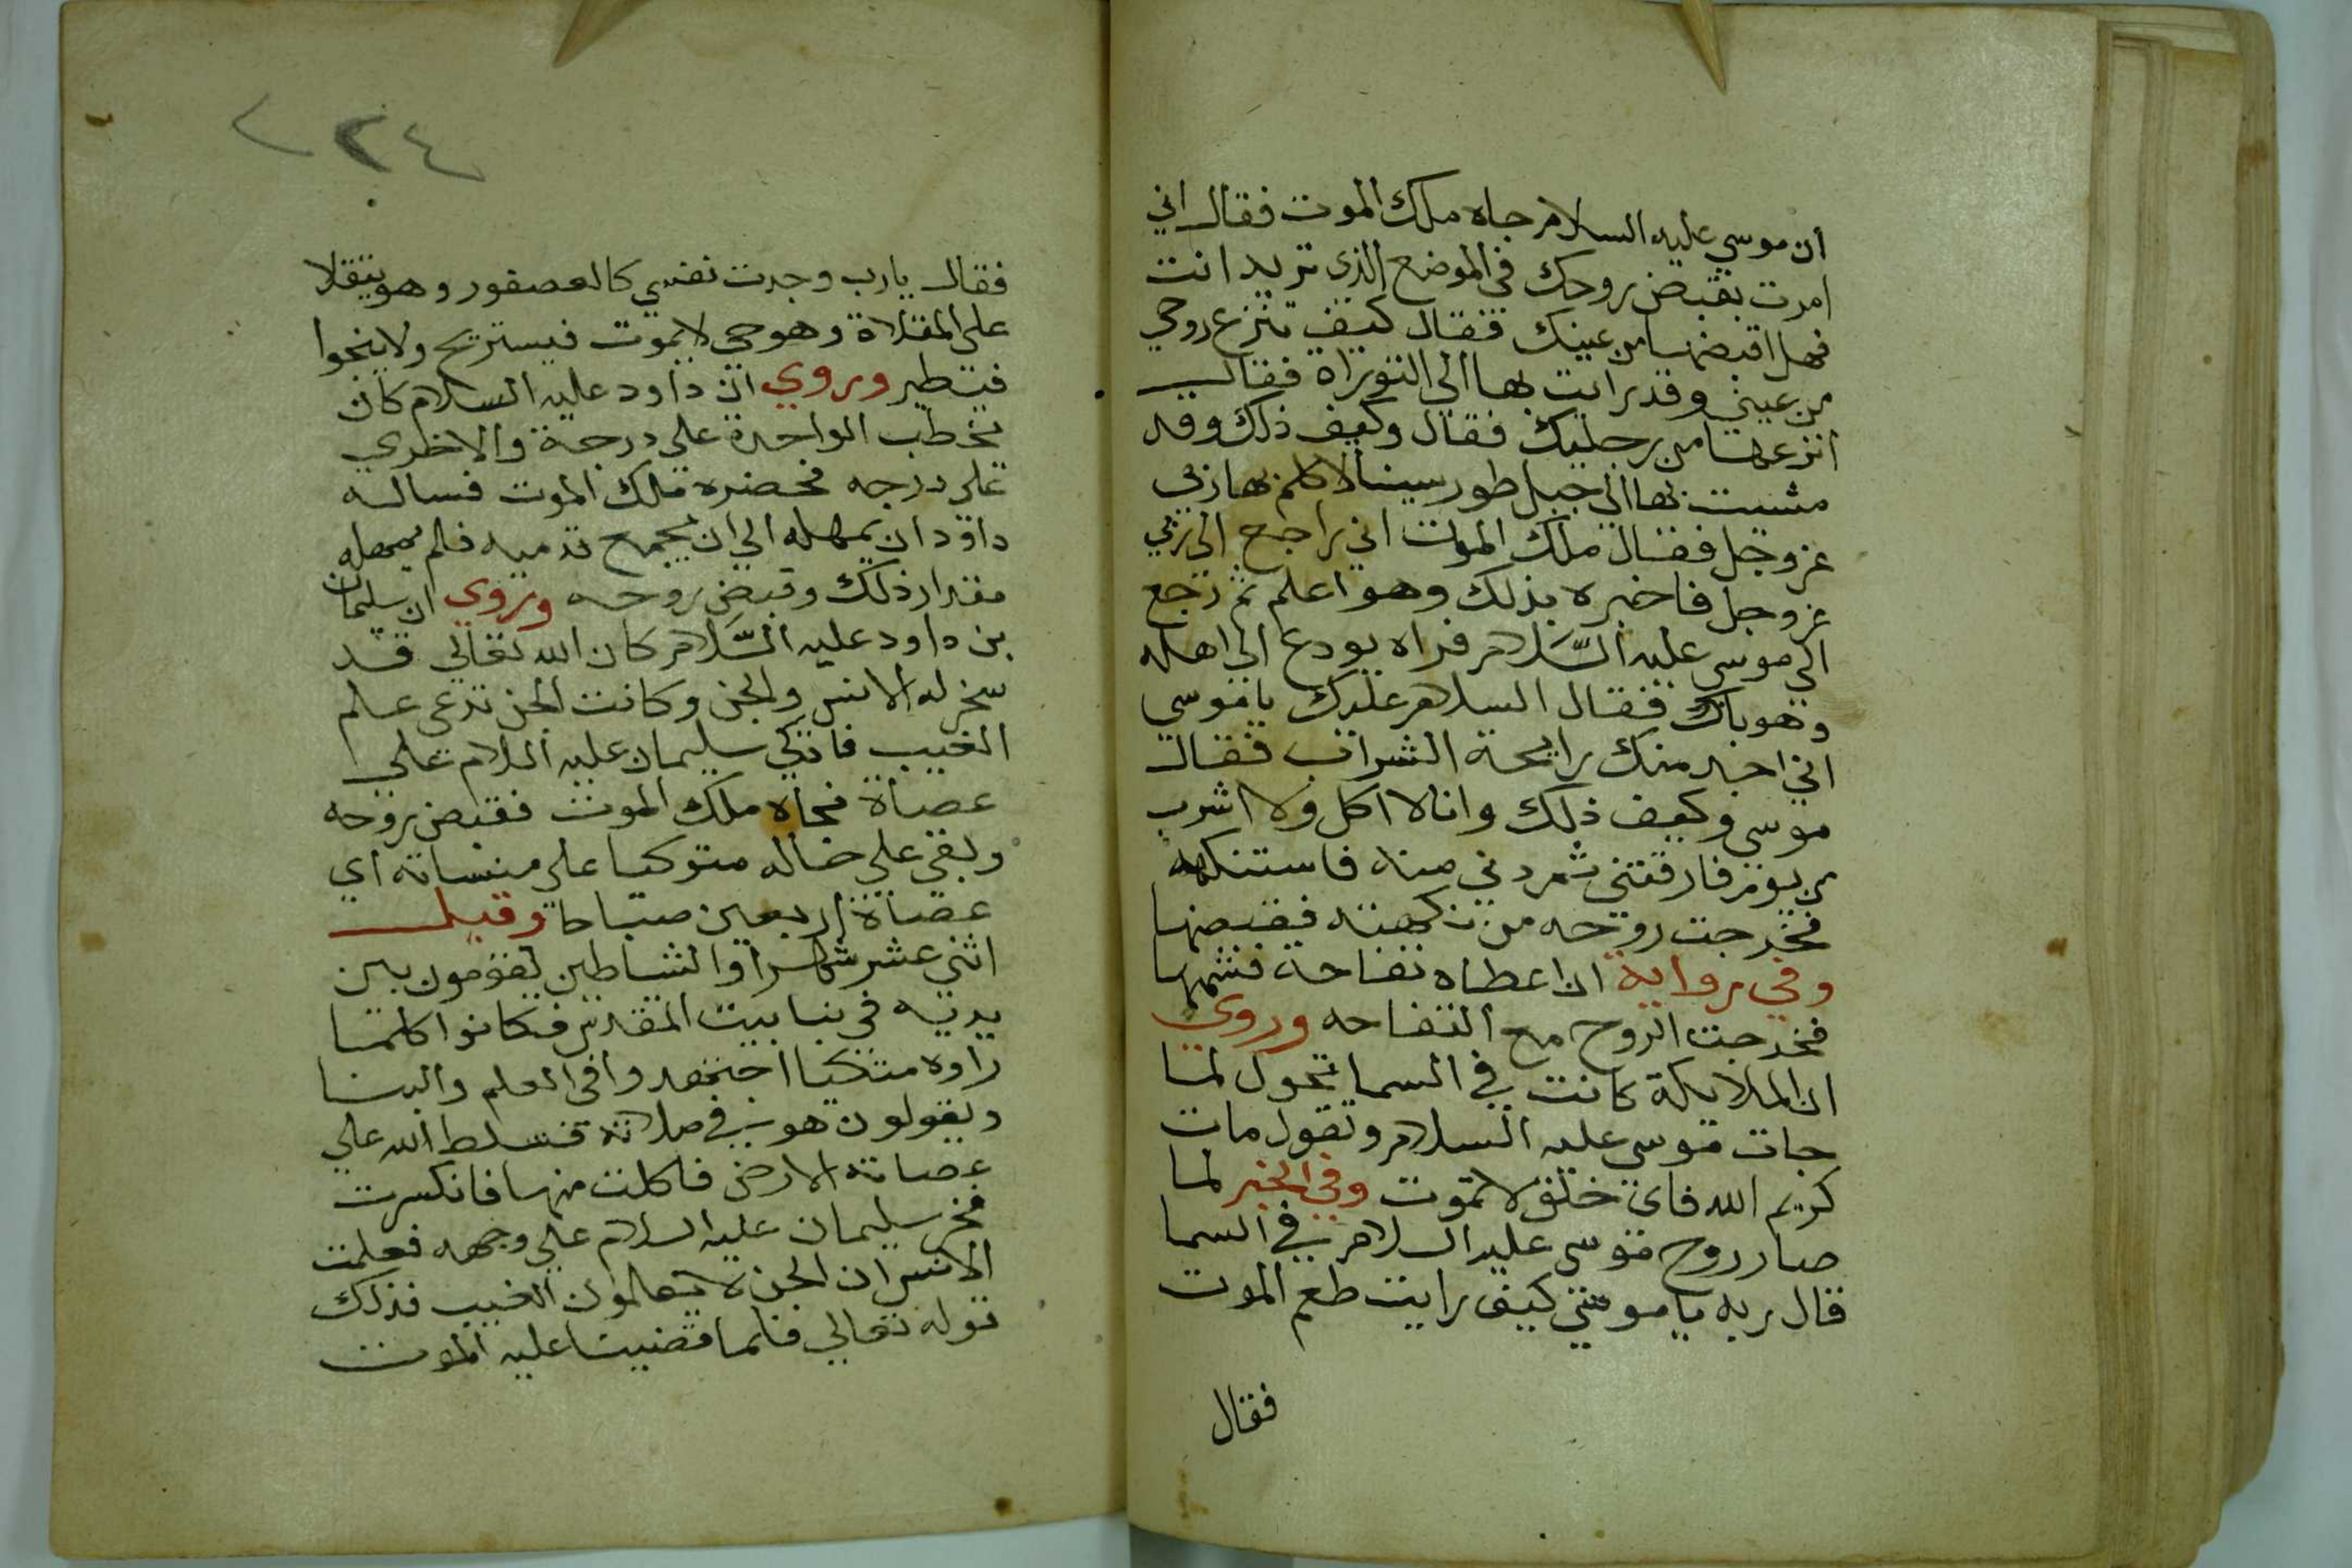 ان موسي عليه السلام جاه ملك الموت فقال اني
امرت بقبض روحك في الموضع الذي تريد انت
فهل اقبضها من عينك فقال كيف تنزع روحي
من عيني وقد رايت بها الي التوراة فقال
انزعها من رجليك فقال وكيف ذلك وقد
مشيت بها الي جبل طور سينا لاكلم بها ربي
عز وجل فقال ملك الموت اني راجع الي ربي
عز وجل فاخبره بذلك وهو اعلم ثم رجع
الي موسي عليه السلام فراه يودع الي اهله
وهو باك فقال السلام عليك يا موسي
اني اجد منك رايحة الشراب فقال
موسي وكيف ذلك وانا لا اكل ولا اشرب
من يوم فارقتني ثم دني منه فاستنكهه
فخرجت روحه من نكهته فقبضها
وفي رواية ان اعطاه تفاحة فشمها
فخرجت الروح مع التفاحه وروي
ان الملايكة كانت في السما تحول لما
جات موسي عليه السلام وتقول مات
كريم الله فاي خلق لا تموت وفي الخبر لما
صار روح موسي عليه السلام في السما
قال ربه يا موسي كيف رايت طعم الموت
فقال
٢٤
فقال يا رب وجدت نفسي كالعصفور وهو يتقلا
علي المقلاة وهو حي لا يموت فيستريح ولا ينجوا
فيتطير وروي ان داود عليه السلام كان
يخطب الواحدة علي درجة والاخري
علي درجه فحضره ملك الموت فساله
داود ان يمهله الي ان يجمع قدميه فلم يمهله
مقدار ذلك وقبض روحه وروي ان سليمان
بن داود عليه السلام كان الله تعالي قد
سخر له الانس والجن وكانت الجن تدعي علم
الغيب فاتكي سليمان عليه السلام علي
عصاة فجاه ملك الموت فقبض روحه
وبقي علي حاله متوكيا علي منساته اي
عصاة اربعين صباحا وقيل
اثني عشر شهرا والشياطين يقومون بين
يديه في بنا بيت المقدس فكانوا كلما
راوه متكيا اجتهدوا في العلم والبنا
ويقولون هو في صلاته فسلط الله علي
عصاته الارض فاكلت منها فانكسرت
فخر سليمان عليه السلام علي وجهه فعلمت
الانس ان الجن لا يعلمون الغيب فذلك
قوله تعالي فلما قضينا عليه الموت